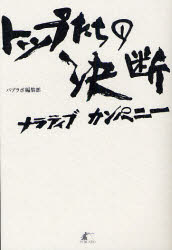 トップたちの
決断
パブラボ編集部
ナラティブ カンパニー